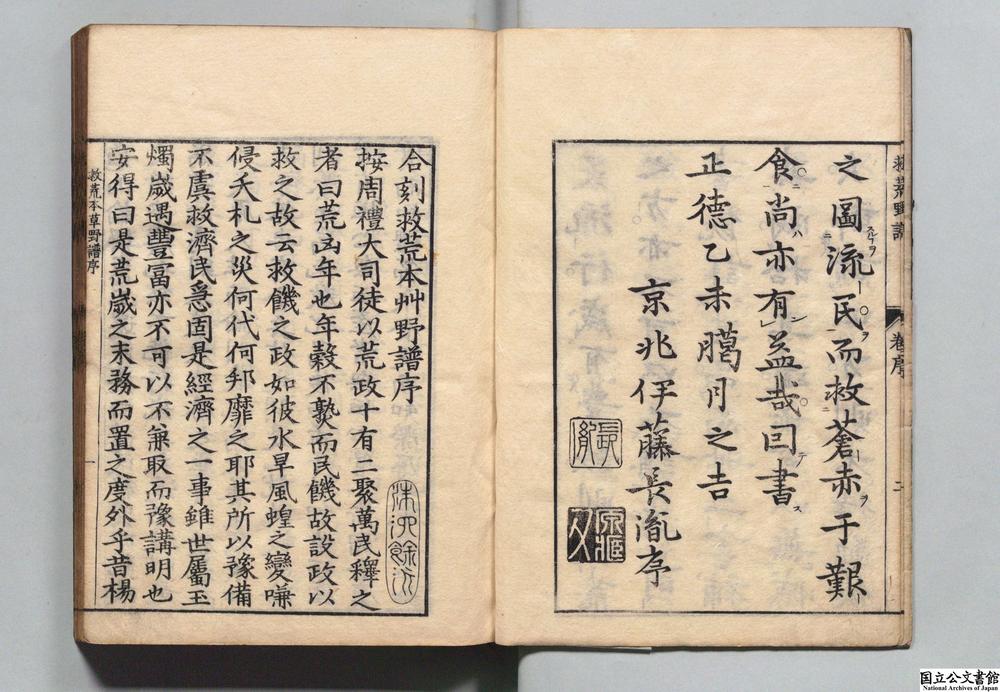 救荒野譜
卷序
二
之圖流民而救蒼赤于艱
食尚亦有益哉因書
正德乙未臈月之吉
京兆伊藤長胤序
長胤
合刻救荒本艸野譜序
按周禮大司徒以荒政十有二聚萬民釋之
者曰荒凶年也年穀不熟而民饑故設政以
救之故云救饑之政如彼水旱風蝗之變嗛
侵夭札之災何代何邦靡之耶其所以豫備
不虞救濟民急固是經濟之一事雖世屬玉
燭歲遇豐富亦不可以不兼取而豫講明也
安得曰是荒歲之末務而置之度外乎昔楊
救荒本草野譜序
一
国立公文書館
National Archives of Japan